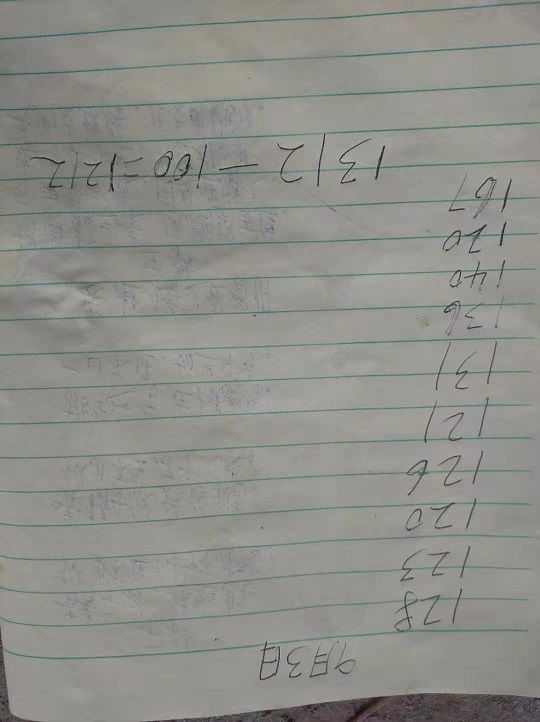 9月3日
128
123
120
126
121
131
136
140
120
167
1312-100=1212